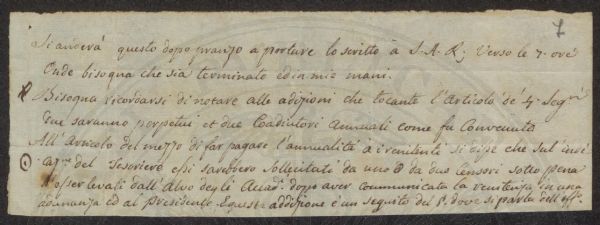 7
Si anderà questo dopo pranzo a portare lo scritto à S. A. R; verso le 7. ore
Onde bisogna che sia terminato ed in mie mani.
Bisogna ricordarsi di notare alle adizioni che tocante l'Articolo de' 4. Seg.ri
due saranno perpetui et due Coadiutori Annuali come fu Convenuto
All' Articolo del mezzo di far pagare l'annualità à i renitenti si disse che sul
del Tesoriere essi sarebbero sollecitati da uno ò da due Censori sotto pena
d'esser levati dall' Albo degli Accad. dopo aver communicata la renitenza in una
adunanza ed al Presidente. Equesta addizione è un seguito del §. dove si parla dell'